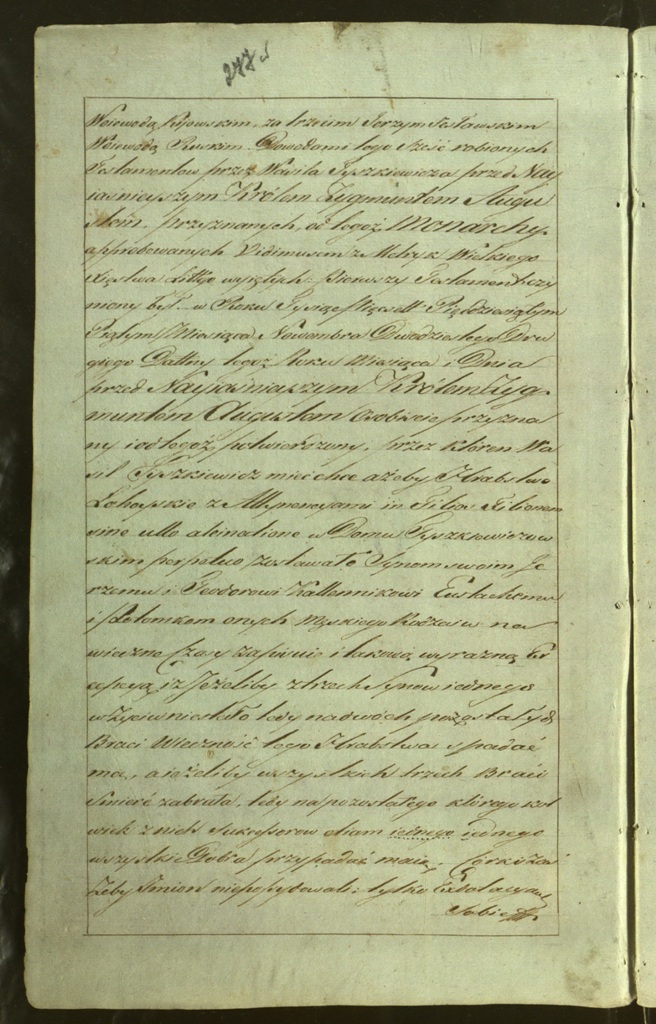 277.
Woiewodą Kijowskim, za trzecim Jerzym Jesławskim
Woiewodą Ruskim. Dowodami tego sześć robionych
Testamentow przez Wasila Tyszkiewicza przed Nay
iasnieyszym Królem Zygmuntem Augu
stem, przyznanych, od tegoż Monarchy
approbowanych Vidimusem z Metryk Wielkiego
Xięstwa Littgo wyiętych: Pierwszy Testament czy
niony był w Roku Tysiąc Pięcset Pięćdziesiątym
Piątym Miesiąca Nowembra Dwudziestego Dru
giego Datty tegoż Roku Miesiąca i Dnia
przed Nayiasnieyszym Królem Zyg
muntem Augustem Osobiście przyzna
ny i od tegoż potwierdzony, przez ktoren Wa
sil Tyszkiewicz mieć chce ażeby Hrabstwo
Łohoyskie z Attynencyami in Filios Filiorum
sine ullo alienatione w Domu Tyszkiewiczow
skim perpetuo zostawało Synom swoim Je
rzemu i Teodorowi Kallennikowi Eustachemu
i Potomkom onych Męskiego Rodzaiu na
wieczne Czasy zapisuie i takową wyrazną Ex
cepcyą iż Jeżeliby z trzech Synow iednego
w Życiu niestało tedy na dwóch pozostałych
Braci Wieczność tego Hrabstwa spadać
ma, a ieżeliby wszystkich trzech Braci
Smierć zabrała, tedy na pozostałego którego kol
wiek z nich Sukcessorow etiam iednego iednego
wszystkie Dobra przypadać maią, Corki zaś
żeby Imion tylko
Sobie